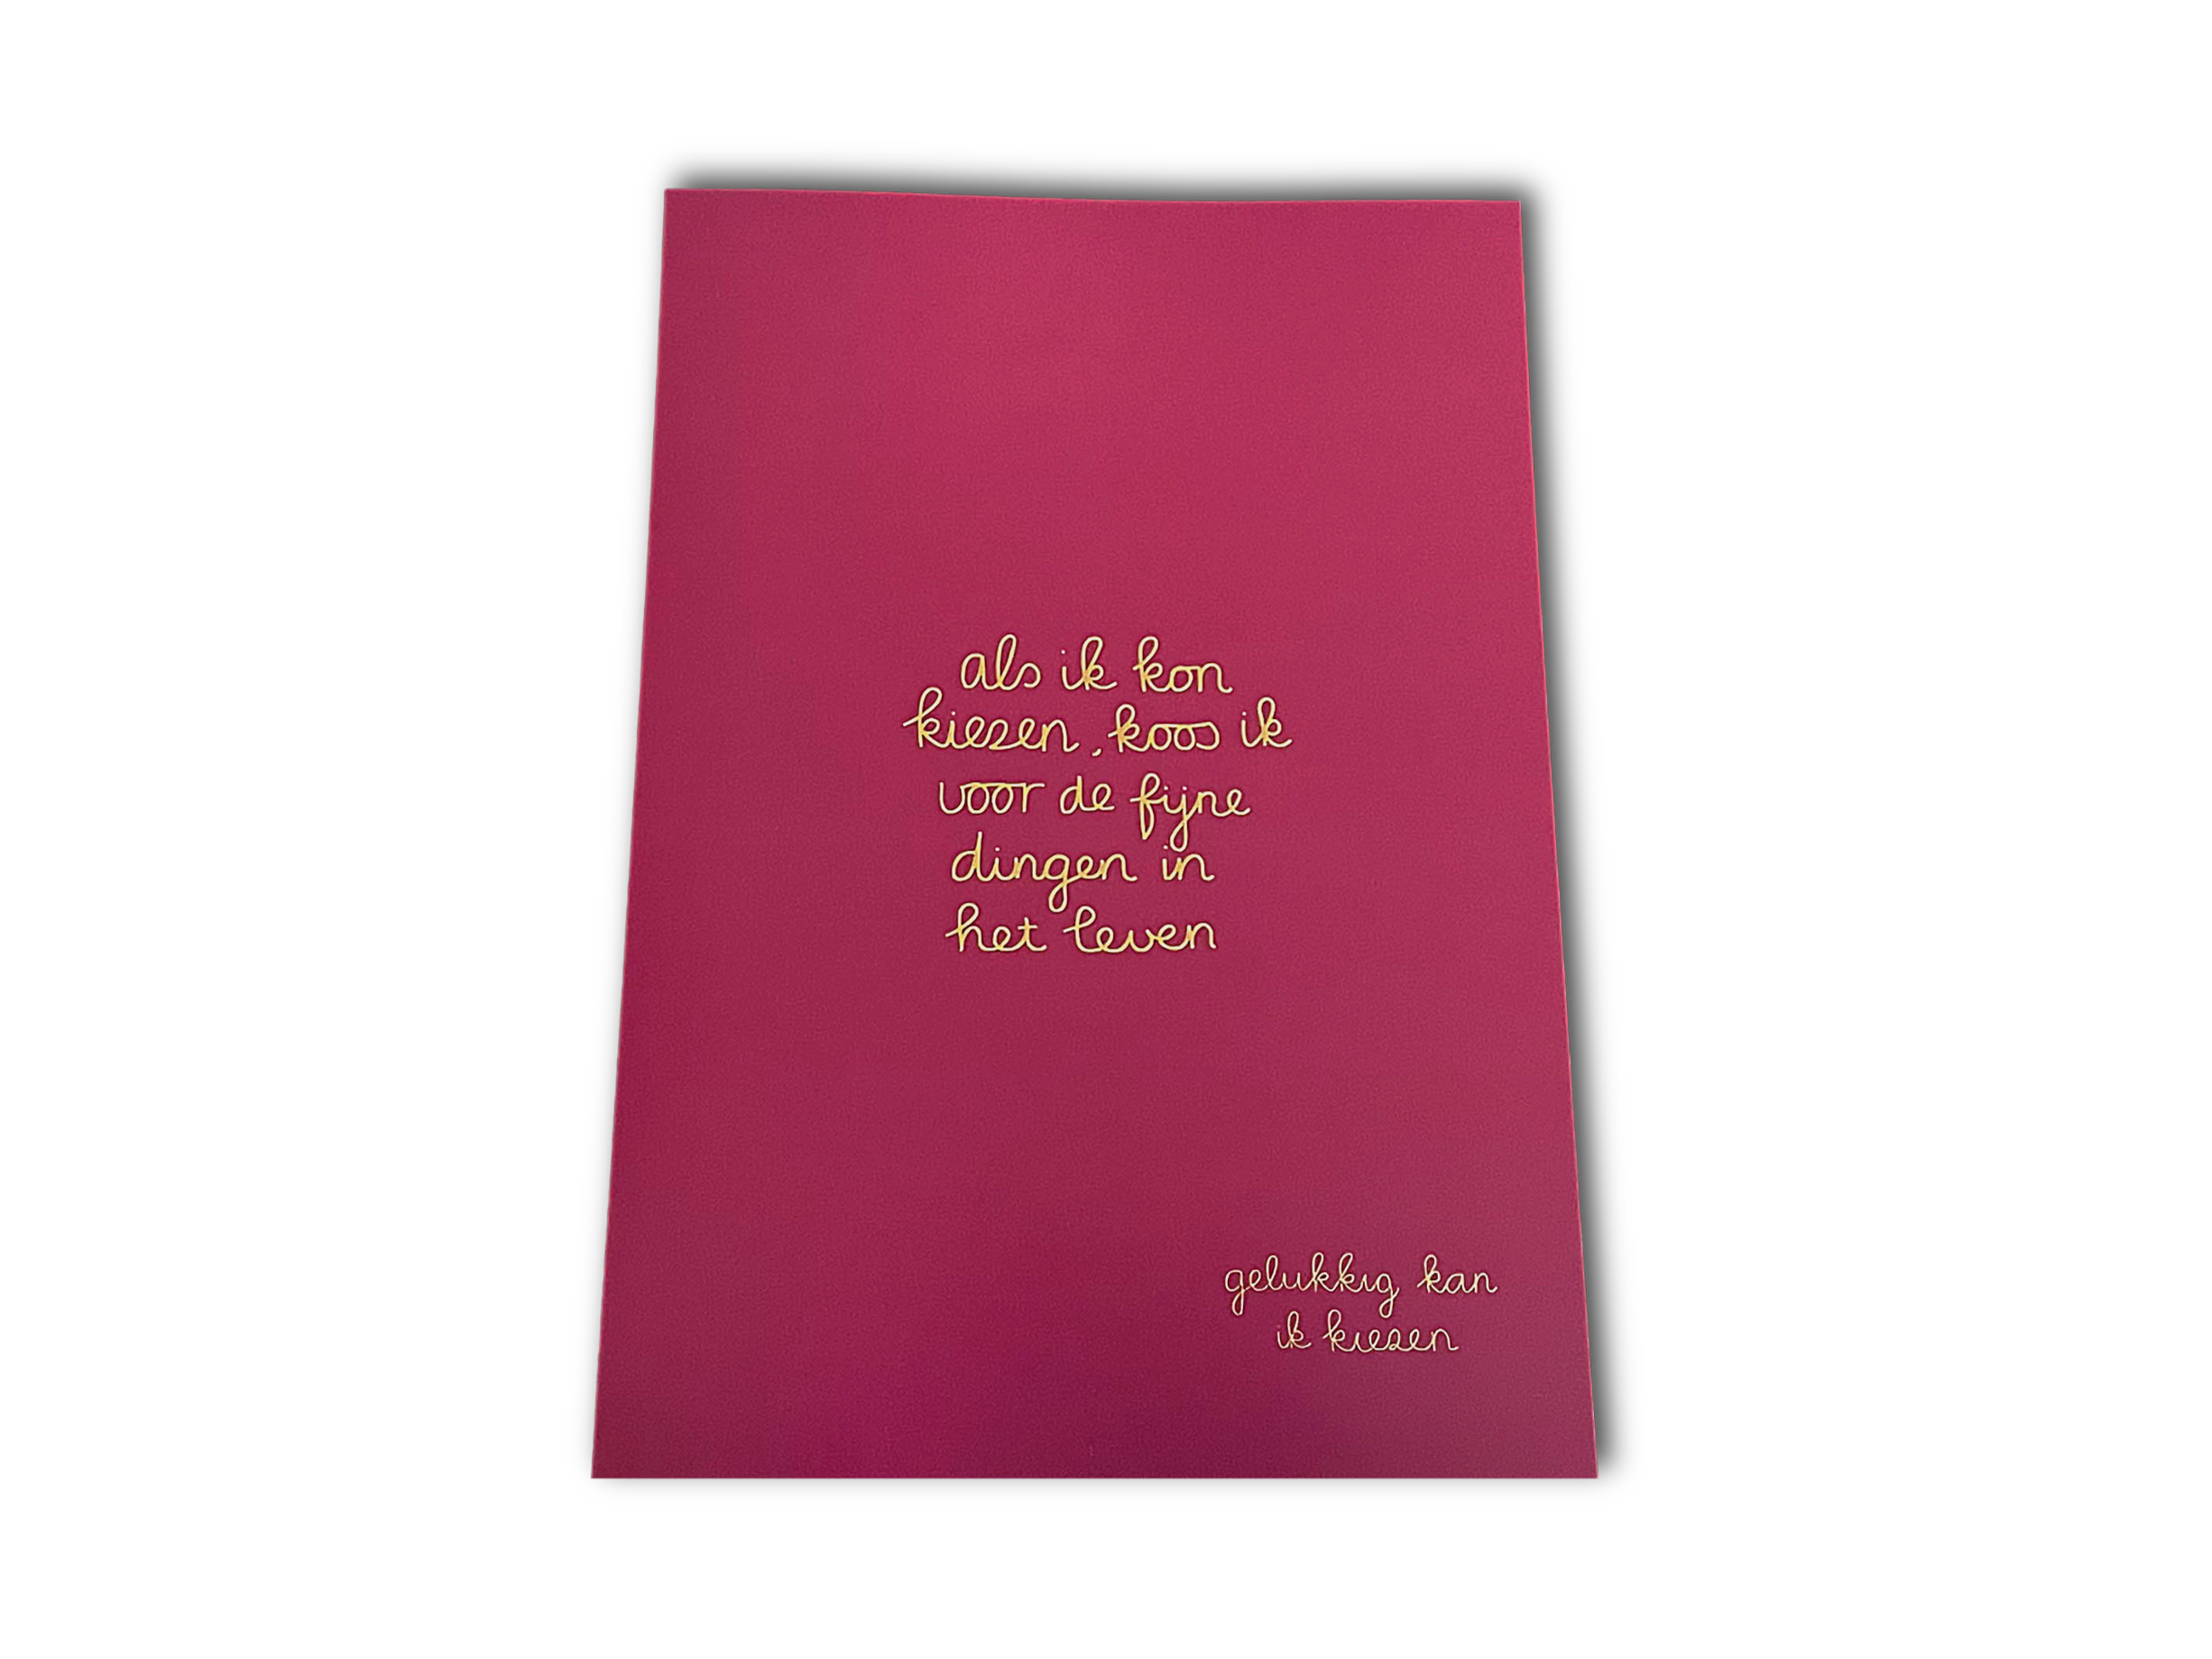 als ik kon
kiezen, koos ik
voor de fijne
dingen in
het leven
gelukkig kan
ik kiezen